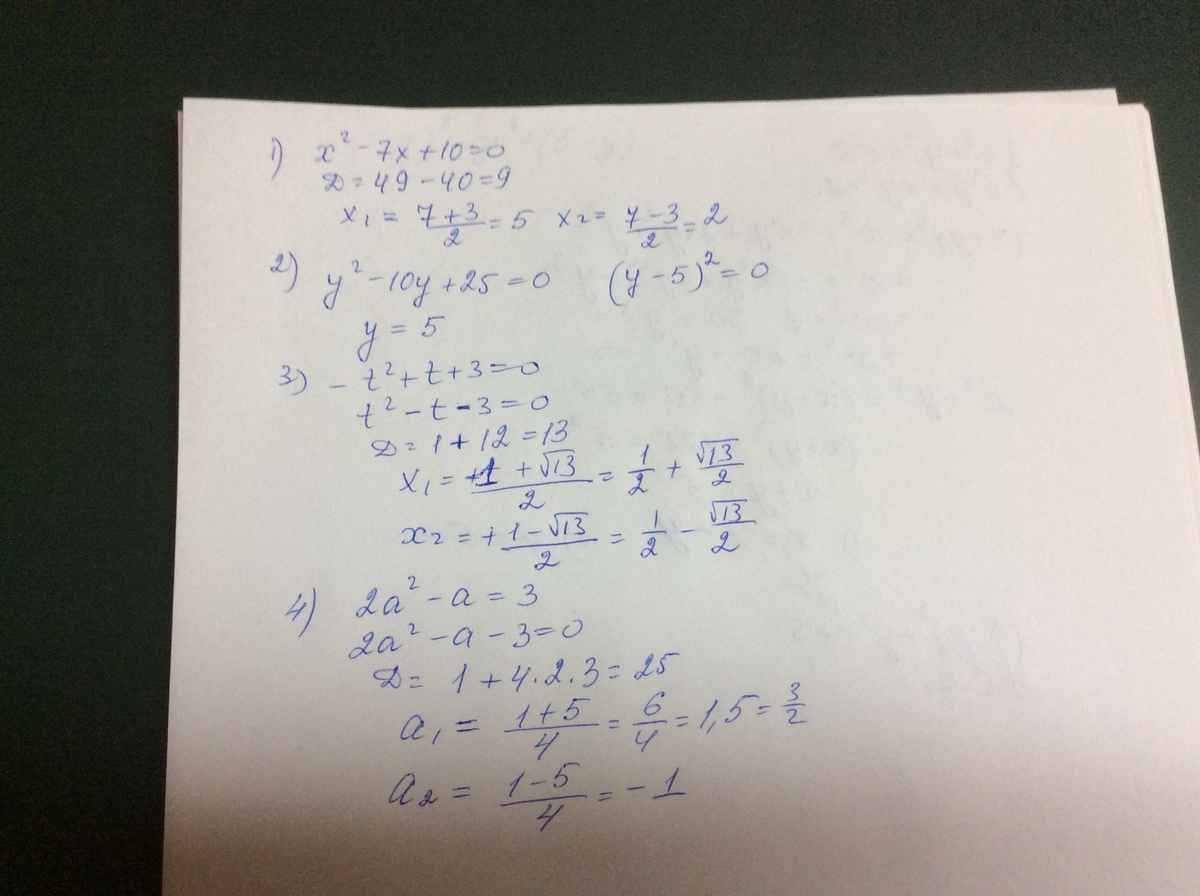 1) x² - 7x + 10 = 0
D = 49 - 40 = 9
x₁ = (7+3)/2 = 5 x₂ = (7-3)/2 = 2
2) y² - 10y + 25 = 0 (y - 5)² = 0
y = 5
3) - t² + t + 3 = 0
t² - t - 3 = 0
D = 1 + 12 = 13
x₁ = +1 + √13/2 = 1/2 + √13/2
x₂ = + (1 - √13)/2 = 1/2 - √13/2
4) 2a² - a = 3
2a² - a - 3 = 0
D = 1 + 4·2·3 = 25
a₁ = (1+5)/4 = 6/4 = 1,5 = 3/2
a₂ = (1-5)/4 = -1